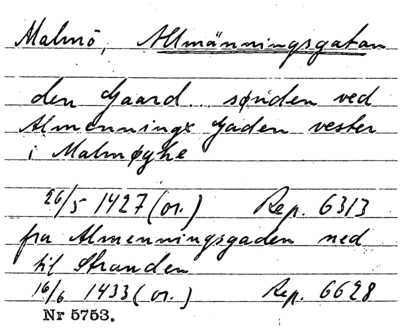 Malmö, Allmänningsgatan
den Gaard .. sønden ved
Almennings Gaden vester
i Malmøghe
26/5 1427 (or.) Rep. 6313
fra Almenningsgaden ned
til Stranden
16/6 1433 (or.) Rep. 6628
Nr 5753.